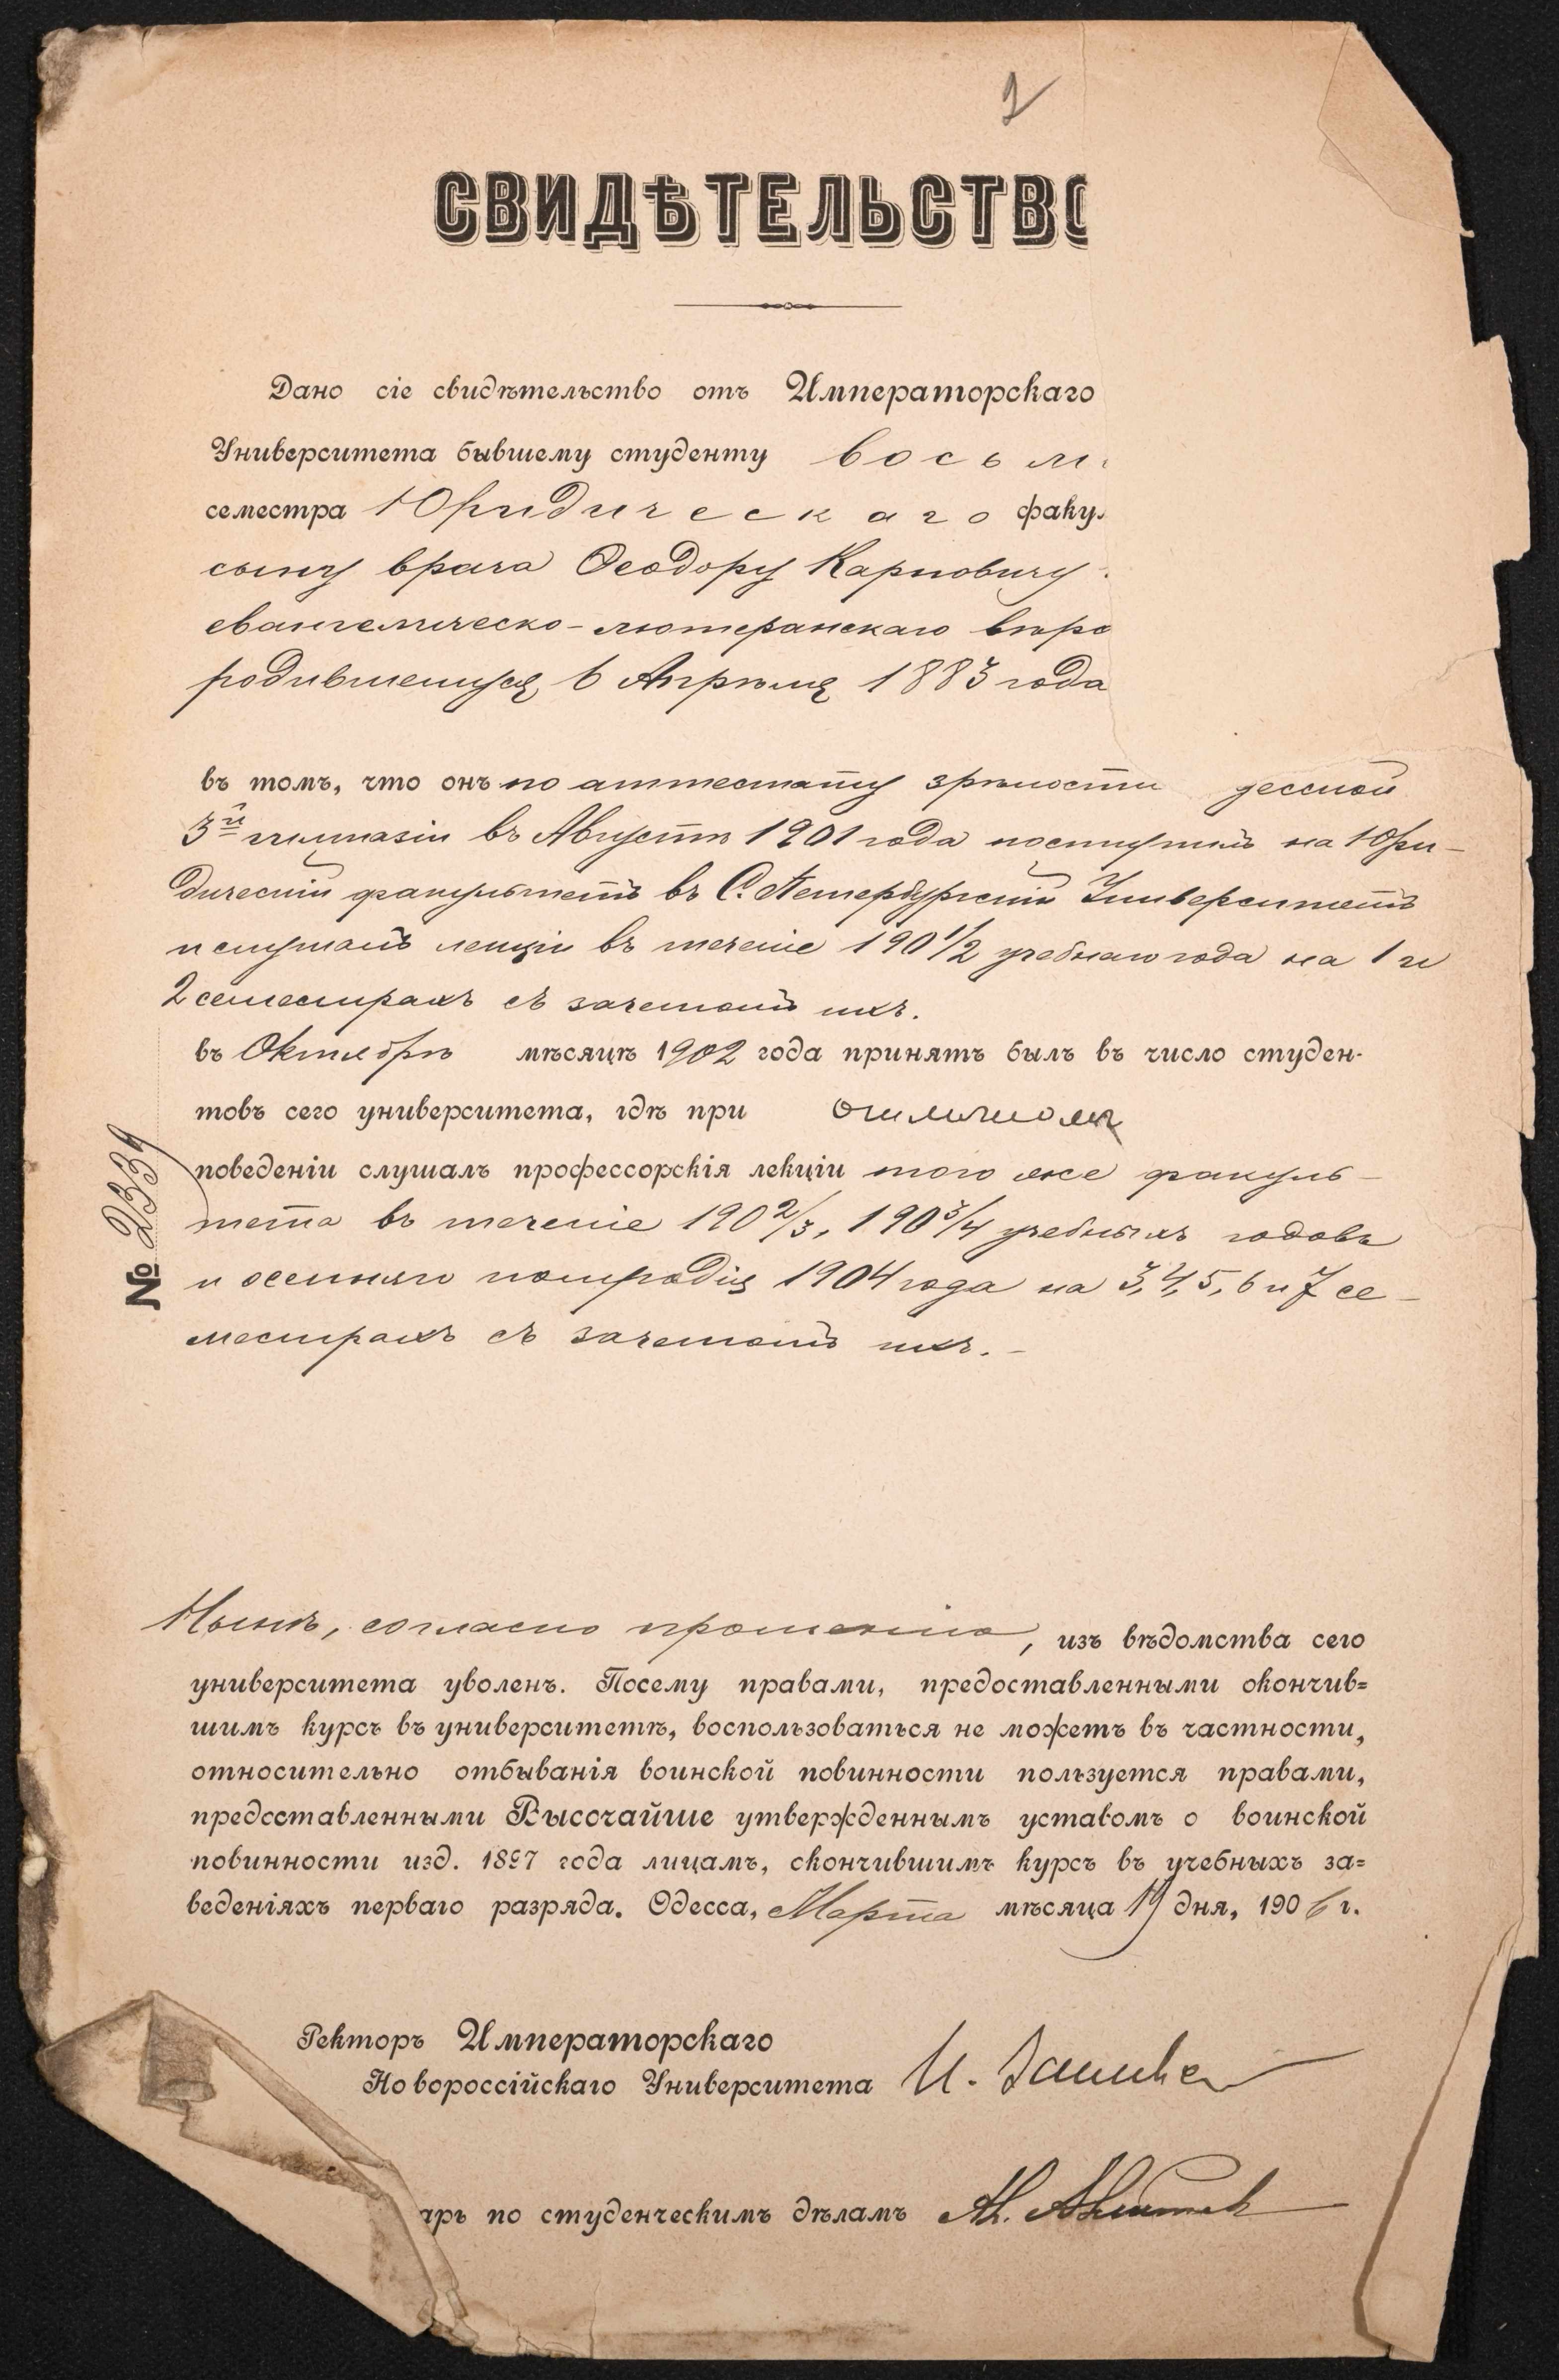 2
СВИДѢТЕЛЬСТВО
Дано сіе свидѣтельство отъ Императорскаго
Университета бывшему студенту восьм
семестра Юридическаго факул
сыну врача Ѳеодору Карловичу
евангелическо-лютеранскаго вѣро
родившемуся 6 Апрѣля 1883 года
въ томъ, что онъ по аттестату зрѣлости десской
3й гимназіи въ Августѣ 1901 года поступилъ на Юри-
дическій факультетъ въ С. Петербургскій Университетъ
и слушалъ лекціи въ теченіе 190 1/2 учебнаго года на 1 и
2 семестрахъ съ зачетомъ ихъ.
въ Октябрѣ мѣсяцѣ 1902 года принятъ былъ въ число студен-
товъ сего университета, гдѣ при отличномъ
поведеніи слушалъ профессорскія лекціи того же факуль-
тета въ теченіе 190 2/3, 190 3/4 учебныхъ годовъ
и осенняго полугодія 1904 года на 3, 4, 5, 6 и 7 се-
местрахъ съ зачетомъ ихъ.-
№ 2339
Нынѣ, согласно прошенію, изъ вѣдомства сего
университета уволенъ. Посему правами, предоставленными окончив=
шимъ курсъ въ университетѣ, воспользоваться не можетъ въ частности,
относительно отбыванія воинской повинности пользуется правами,
предоставленными Высочайше утвержденнымъ уставомъ о воинской
повинности изд. 1897 года лицамъ, окончившимъ курсъ въ учебныхъ за=
веденіяхъ перваго разряда. Одесса, Марта мѣсяца 19 дня, 1906 г.
Ректоръ Императорскаго
Новороссійскаго Университета И. Занчевскій
арь по студенческимъ дѣламъ